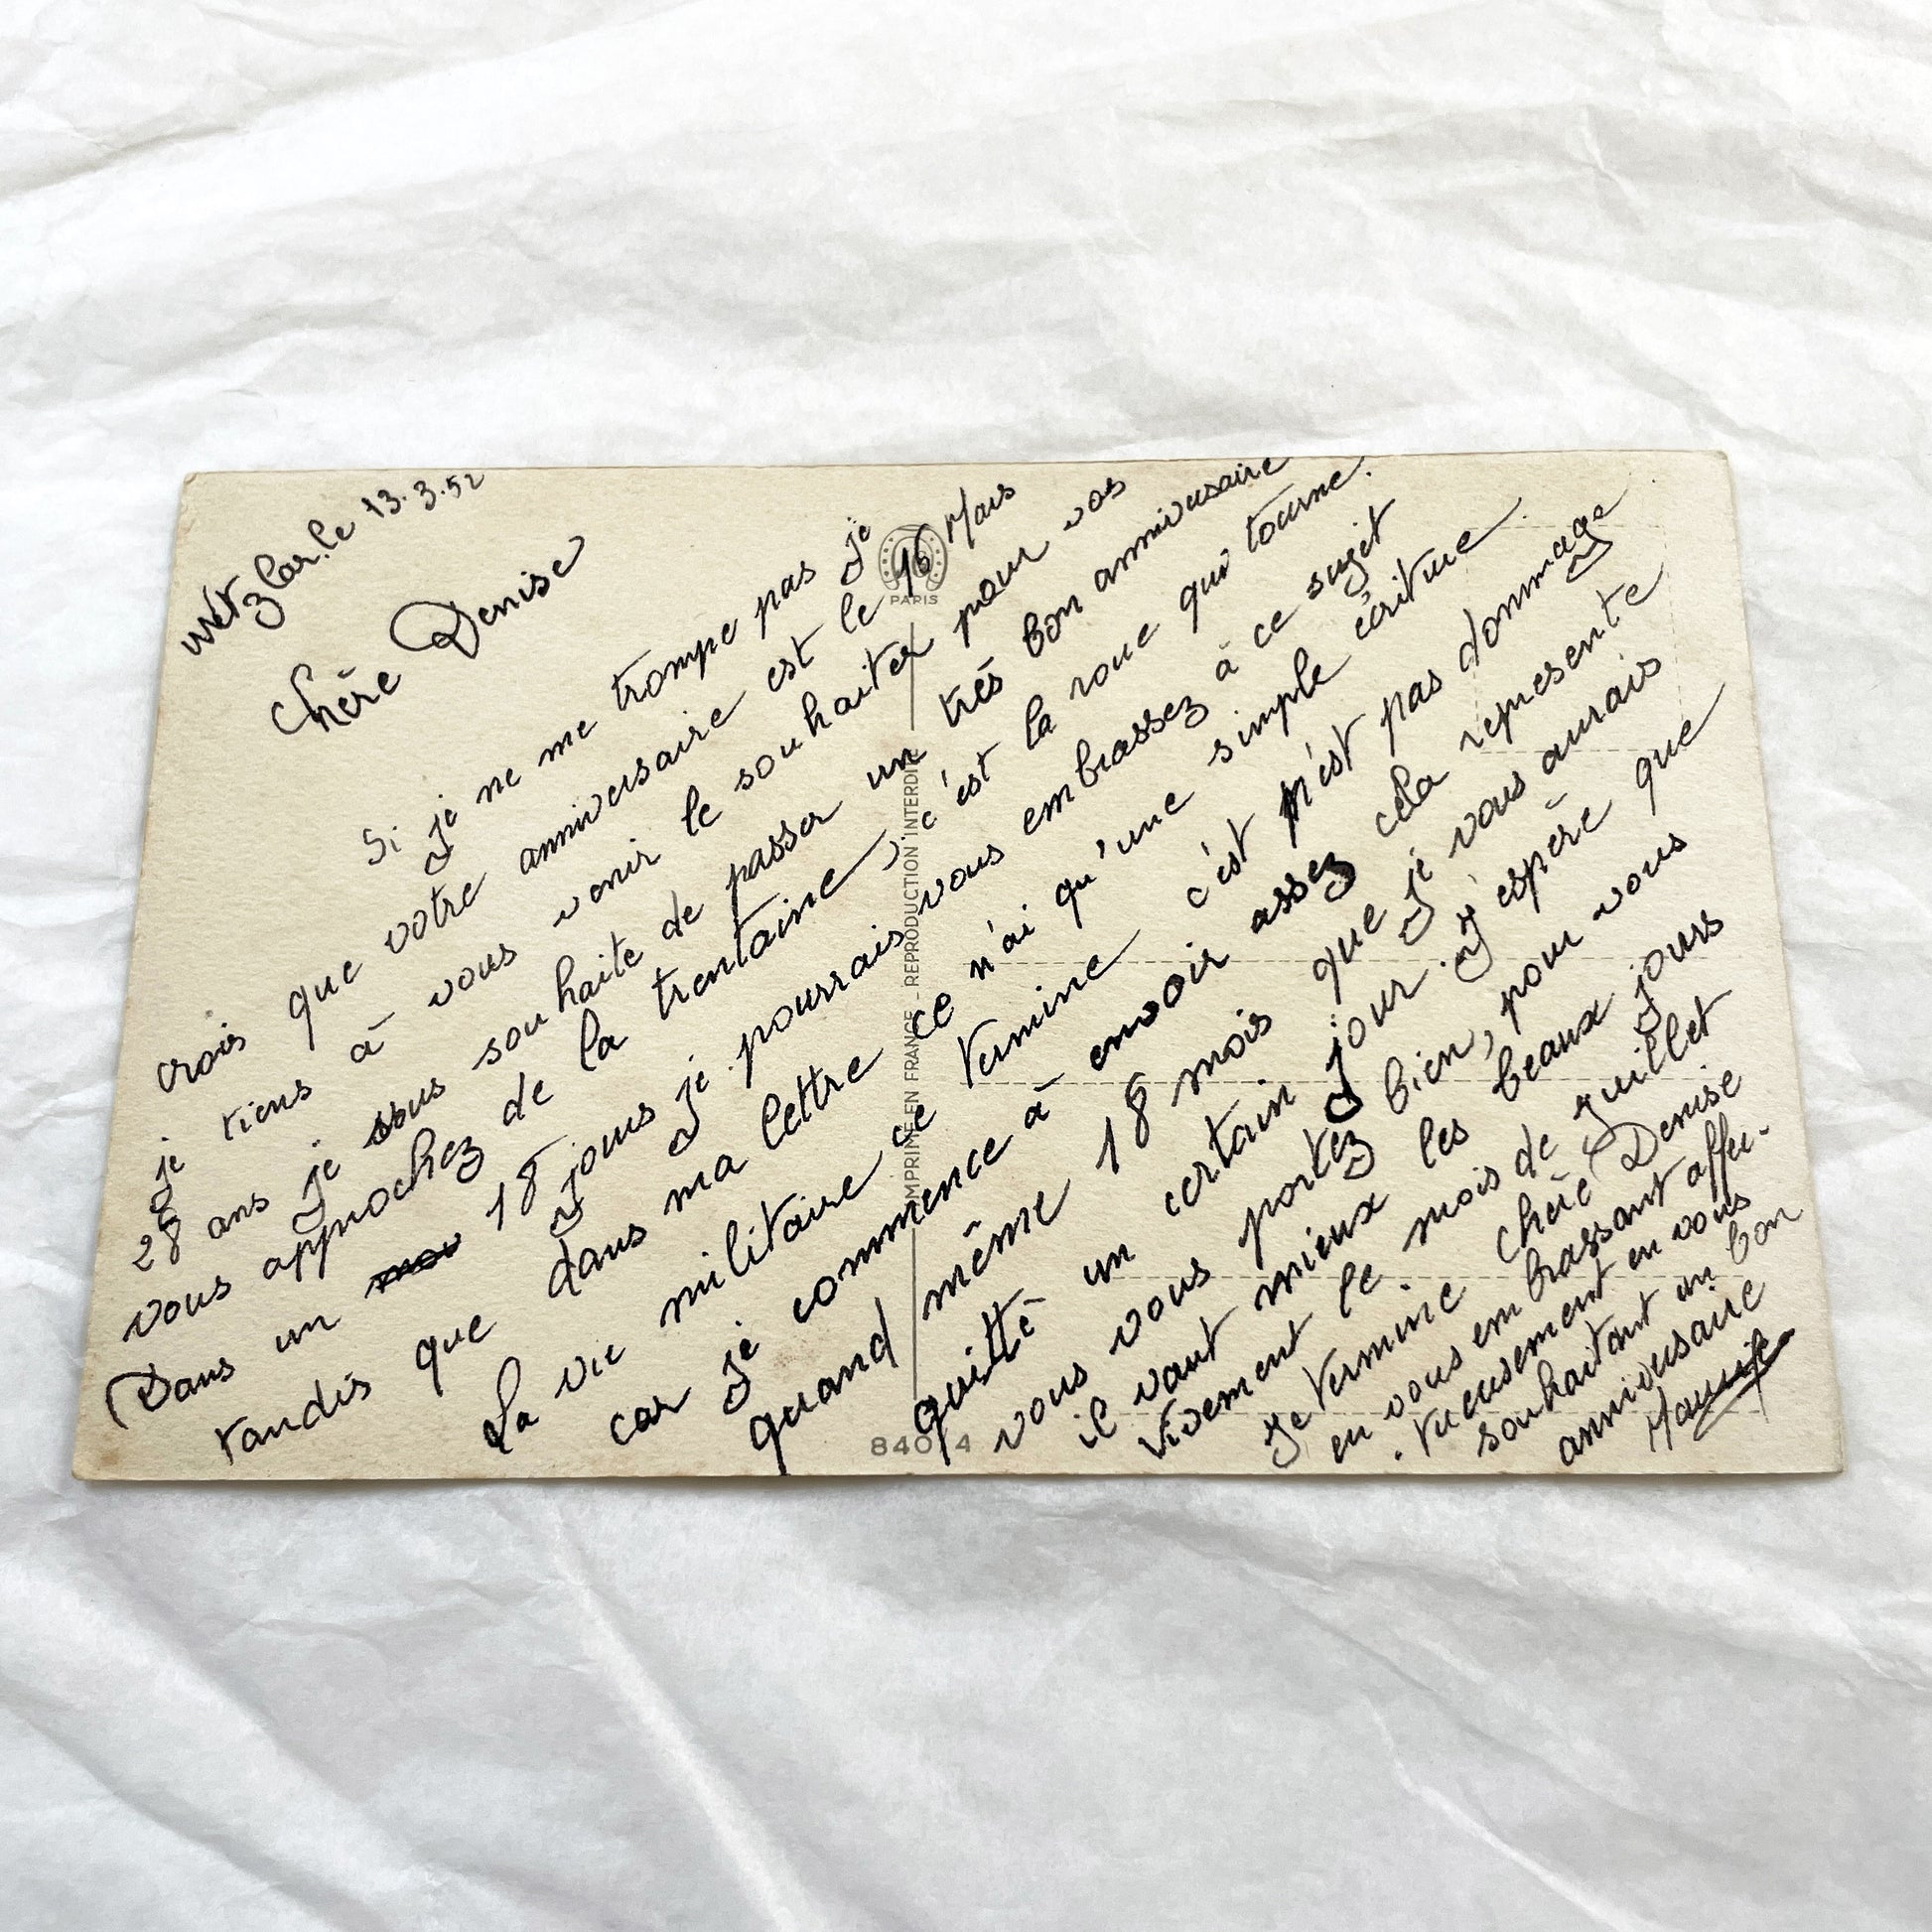 Wetzlar.le 13.3.52
Chère Denise
Si je ne me trompe pas je
crois que votre anniversaire est le 16 Mars
je tiens à vous venir le souhaiter pour vos
28 ans je vous souhaite de passer un très bon anniversaire
vous approchez de la trentaine, c'est la roue qui tourne.
Dans un 18 jours je pourrais vous embrassez à ce sujet
tandis que dans ma lettre ce n'ai qu'une simple écriture.
La vie militaire ce termine c'est n'est pas dommage
car je commence à envoir assez cela represente
quand même 18 mois que je vous aurais
quitté un certain jour. j'espère que
vous vous portez bien, pour vous
il vaut mieux les beaux jours
Vivement le mois de juillet
Je termine Chère Denise
en vous embrassant affec-
tueusement en vous
souhaitant un bon
anniversaire
IMPRIMÉ EN FRANCE - REPRODUCTION INTERDITE
PARIS